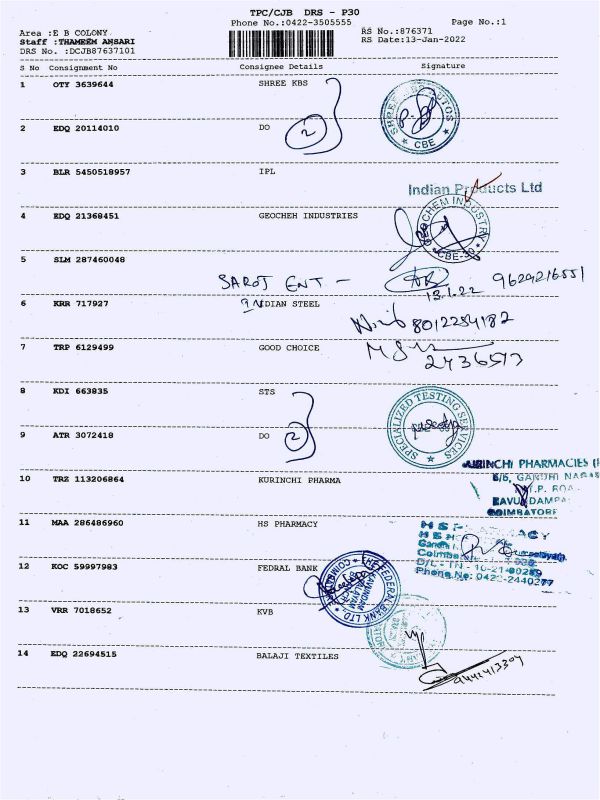 TPC/CJB DRS - P30
Phone No.:0422-3505555
Page No.:1
Area :E B COLONY
Staff :THAMEEM ANSARI
DRS No. :DCJB87637101
RS No.:876371
RS Date:13-Jan-2022
S No Consignment No Consignee Details Signature
1 OTY 3639644 SHREE KBS
CBE
2 EDQ 20114010 DO 2
3 BLR 5450518957 IPL
Indian Products Ltd
4 EDQ 21368451 GEOCHEH INDUSTRIES
GEOCHEM INDUSTRY
CBE-30
5 SLM 287460048
SAROJ ENT - 13.1.22 9629216551
6 KRR 717927 INDIAN STEEL
8012254182
7 TRP 6129499 GOOD CHOICE
2436513
8 KDI 663835 STS
SPECIALIZED TESTING SERVICES
9 ATR 3072418 DO 2
10 TRZ 113206864 KURINCHI PHARMA
KURINCHI PHARMACIES
GANDHI NAGAR
COIMBATORE
11 MAA 286486960 HS PHARMACY
D/L - TN - 16-21-00289
Phone.No: 0422-2440277
12 KOC 59997983 FEDRAL BANK
THE FEDERAL BANK LTD
13 VRR 7018652 KVB
14 EDQ 22694515 BALAJI TEXTILES
9442413304